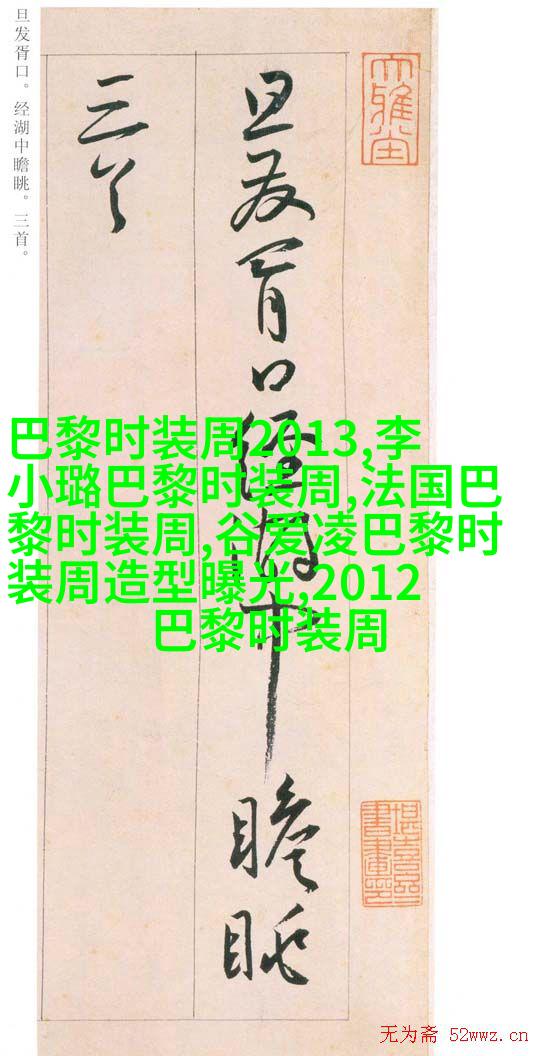 旦发胥口。经湖中瞻眺。三首。
旦发胥口经湖中瞻眺
三首
大雅堂
巴黎时装周2013,李
小璐巴黎时装周,法国巴
黎时装周,谷爱凌巴黎时
装周造型曝光,2012
巴黎时装周
无为斋 52wwz.cn